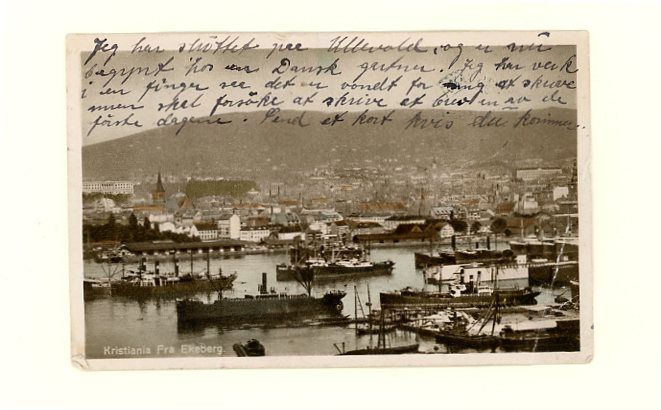 Jeg har sluttet paa Ullevold, og er nu
begynt hos en Dansk gartner. Jeg har verk
i en finger saa det er vondt for mig at skrive
men skal forsöke at skrive et brev en av de
förste dagene. Send et kort hvis du kommer.
Kristiania Fra Ekeberg.